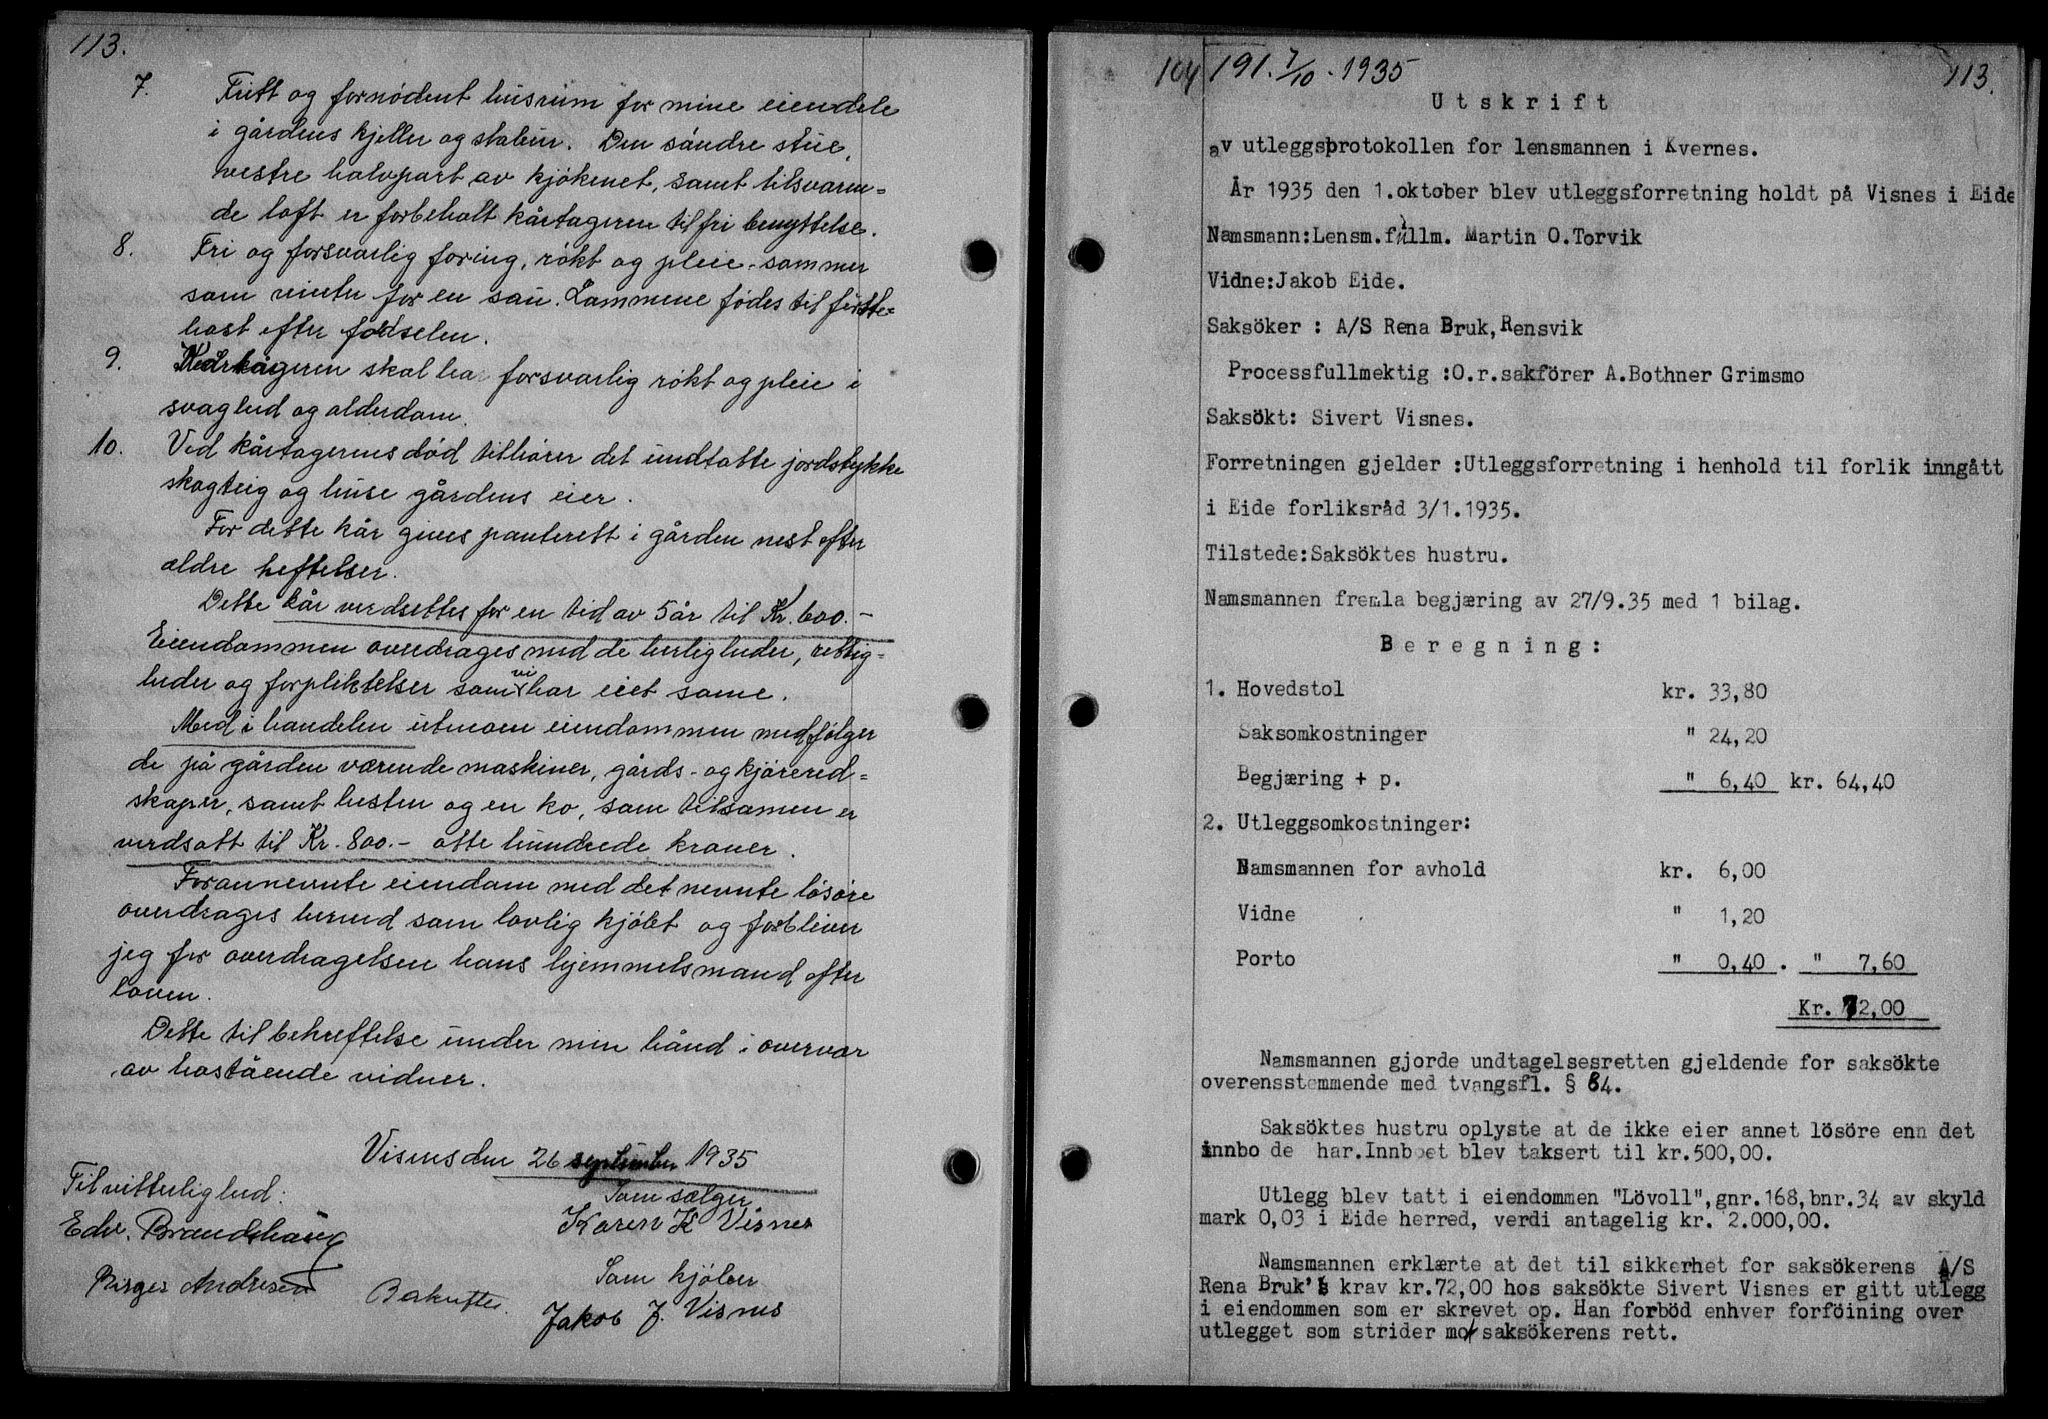 113.
7. Fritt og fornödent husrum for mine eiendele
i gårdens kjeller og stabur. Den söndre stue,
vestre halvpart av kjökenet, samt tilsvaren=
de loft er forbeholt kårtageren til fri benyttelse.
8. Fri og forsvarlig foring, rökt og pleie - sommer
som vinter for en sau. Lammene födes til förste=
höst efter födselen.
9. Kårtageren skal ha forsvarlig rökt og pleie i
svaghed og alderdom.
10. Ved kårtagerens död tilhörer det undtatte jordstykke
skogteig og huse gårdens eier.
For dette kår gives panterett i gården nest efter
eldre heftelser.
Dette kår verdsettes for en tid av 5 år til Kr. 600.-
Eiendommen overdrages med de herligheder, rettig=
heder og forpliktelser som vi har eiet same.
Med i handelen utenom eiendommen medfölger
de på gården værende maskiner, gårds- og kjörered=
skaper, samt hesten og en ko, som tilsamen er
verdsatt til Kr. 800.- otte hundrede kroner.
Forannevnte eiendom med det nevnte lösöre
overdrages herved som lovlig kjöbt og forbliver
jeg for overdragelsen hans hjemmelsmand efter
loven.
Dette til bekreftelse under min hånd i overvær
av hoståendе vidner.
Visnes den 26 september 1935
Til vitterlighed:
Som sælger
Edv. Brandshaug
Karen K Visnes
Som kjöber
Birger Andresen
Bekreftes.
Jakob J. Visnes
104 191. 7/10 - 1935 113.
Utskrift
av utleggsprotokollen for lensmannen i Kvernes.
År 1935 den 1.oktober blev utleggsforretning holdt på Visnes i Eide
Namsmann:Lensm.fullm. Martin O.Torvik
Vidne:Jakob Eide.
Saksöker : A/S Rena Bruk, Rensvik
Processfullmektig :O.r.sakförer A.Bothner Grimsmo
Saksökt: Sivert Visnes.
Forretningen gjelder :Utleggsforretning i henhold til forlik inngått
i Eide forliksråd 3/1.1935.
Tilstede:Saksöktes hustru.
Namsmannen fremla begjæring av 27/9.35 med 1 bilag.
Beregning:
1. Hovedstol kr. 33,80
Saksomkostninger " 24,20
Begjæring + p. " 6,40 kr. 64,40
2. Utleggsomkostninger:
Namsmannen for avhold kr. 6,00
Vidne " 1,20
Porto " 0,40 . " 7,60
Kr. 72,00
Namsmannen gjorde undtagelsesretten gjeldende for saksökte
overensstemmende med tvangsfl. § 84.
Saksöktes hustru oplyste at de ikke eier annet lösöre enn det
innbo de har.Innboet blev taksert til kr.500,00.
Utlegg blev tatt i eiendommen "Lövoll",gnr.168,bnr.34 av skyld
mark 0,03 i Eide herred, verdi antagelig kr. 2.000,00.
Namsmannen erklærte at det til sikkerhet for saksökerens A/S
Rena Bruk's krav kr.72,00 hos saksökte Sivert Visnes er gitt utlegg
i eiendommen som er skrevet op. Han forböd enhver forföining over
utlegget som strider mot saksökerens rett.